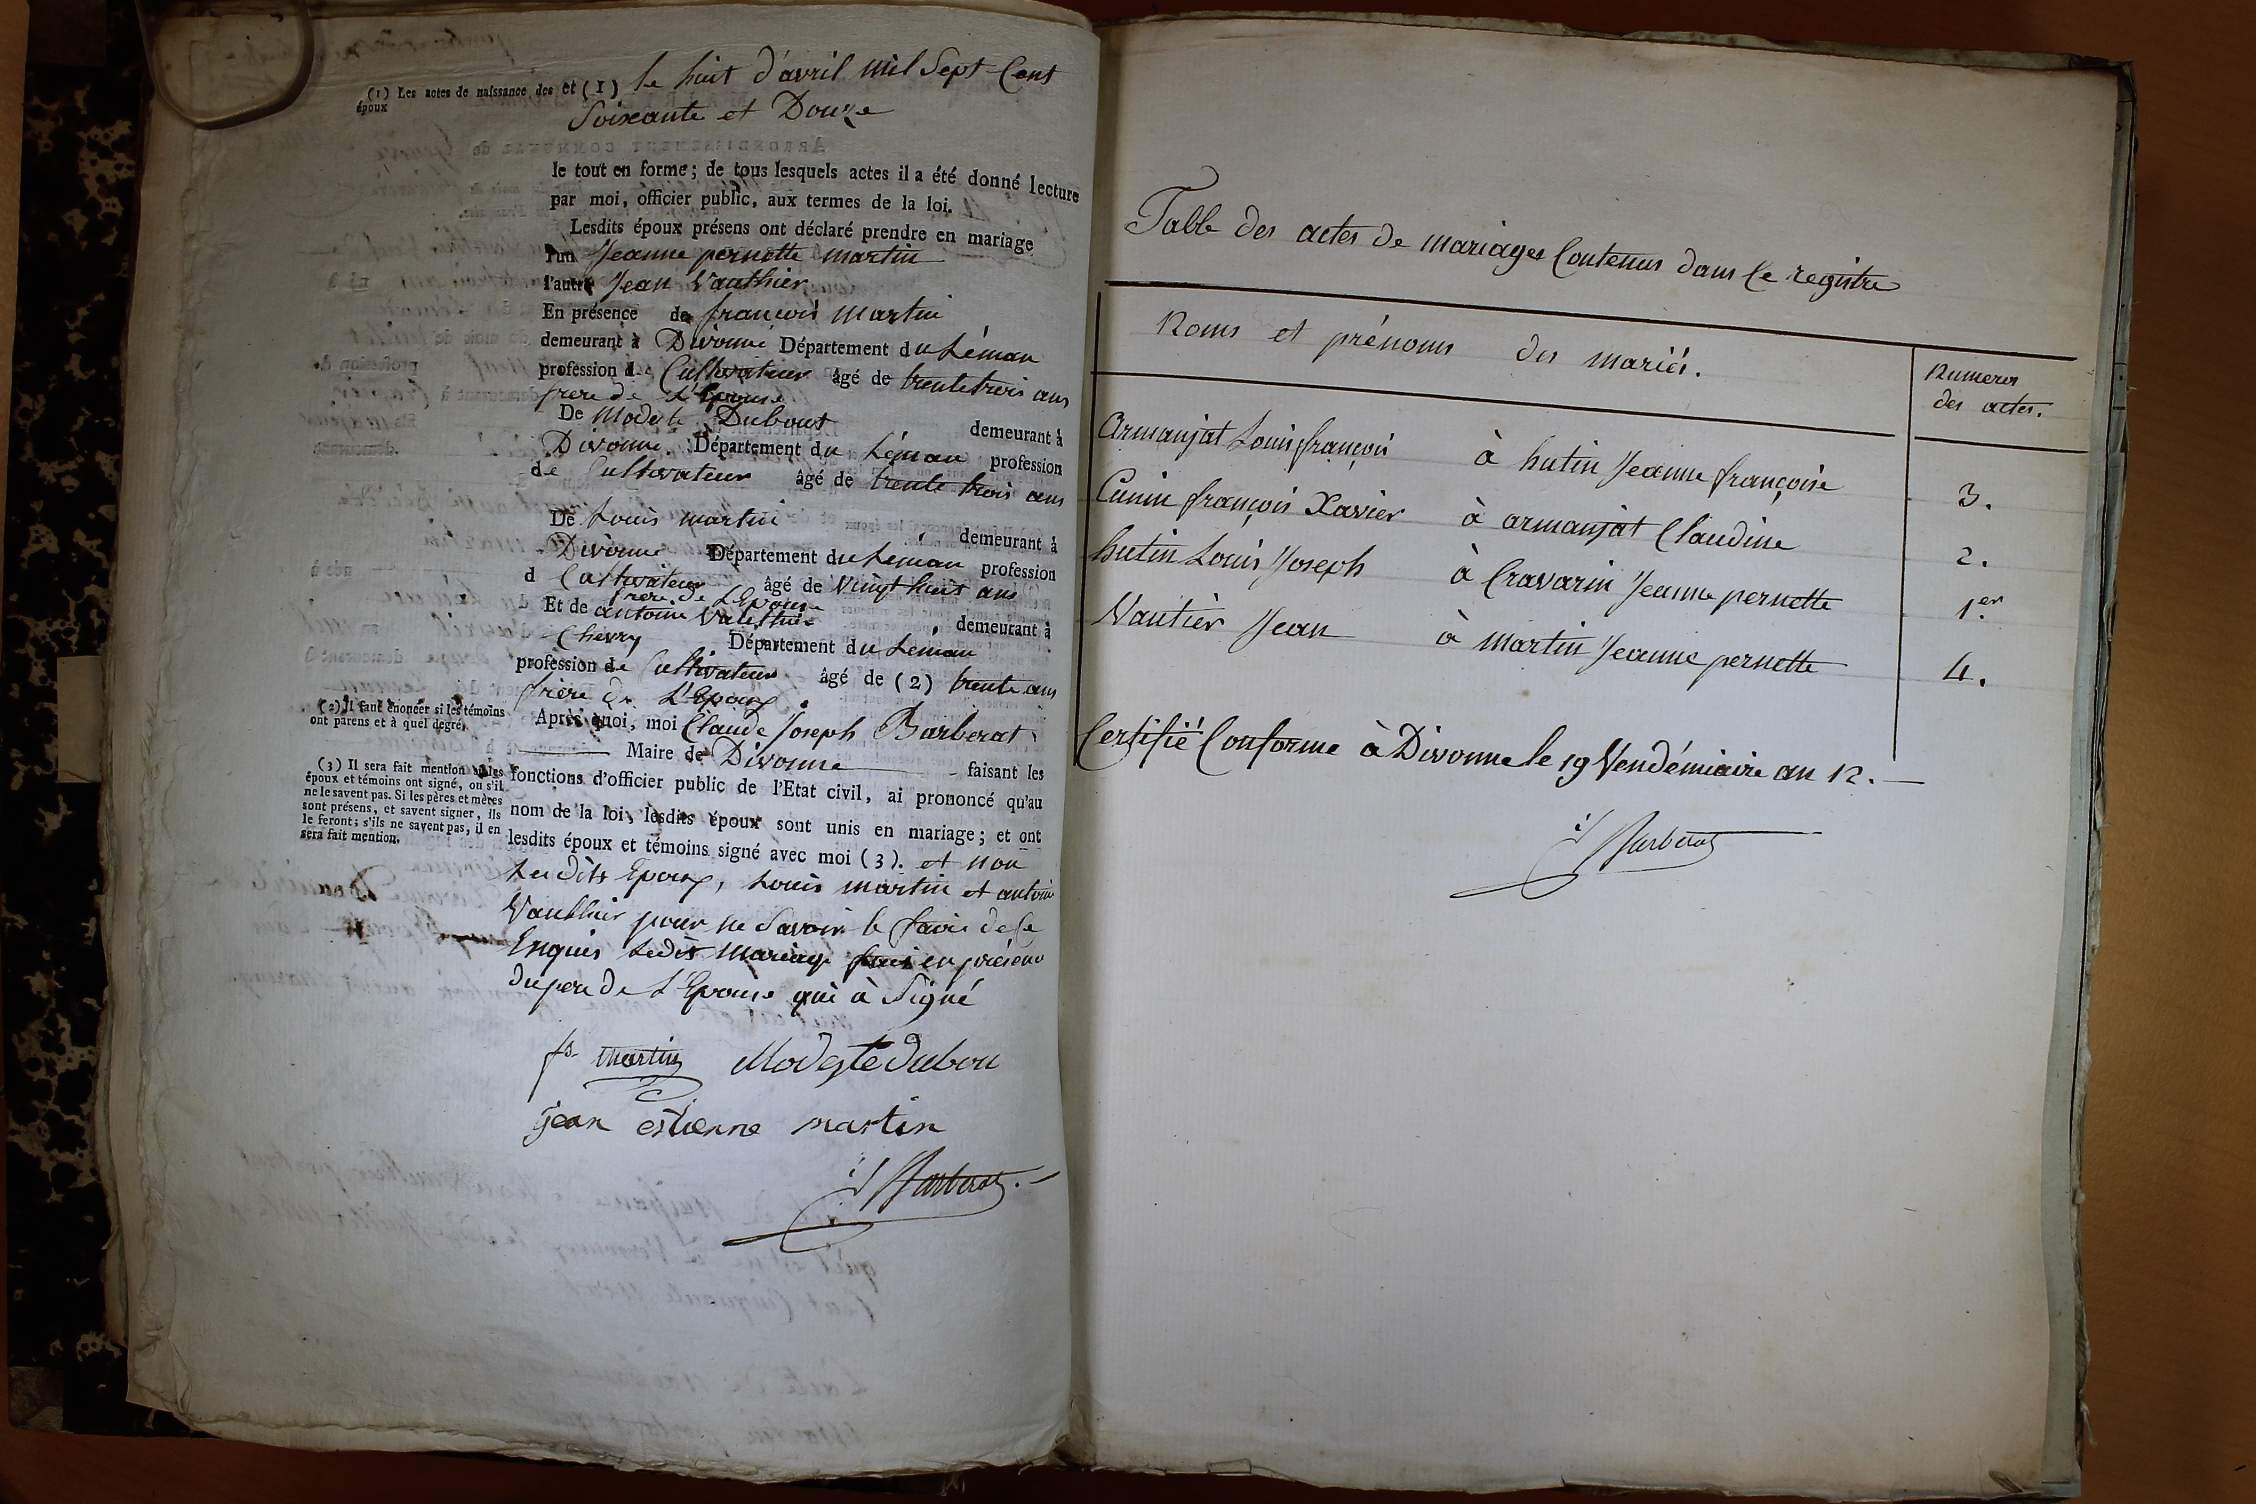 (1) Les actes de naissance des époux
et (1) le huit d'avril mil Sept Cent
Soixante et Douze
le tout en forme; de tous lesquels actes il a été donné lecture
par moi, officier public, aux termes de la loi.
Lesdits époux présens ont déclaré prendre en mariage
l'un Jeanne pernette martin
l'autre Jean Vauthier
En présence de françois martin
demeurant à Divonne Département du Léman
profession de Cultivateur âgé de trente trois ans
frere de L'Epouse
De Modeste Dubout demeurant à
Divonne Département du Léman profession
de Cultivateur âgé de trente trois ans
De Louis martin demeurant à
Divonne Département du Leman profession
d Cultivateur âgé de Vingt huit ans
frere de L'Epouse
Et de antoine demeurant à
Chevry Département du Léman
profession de Cultivateur âgé de (2) trente ans
frère de L'Epoux
(2) Il faut énoncer si les témoins
ont parens et à quel degré.
Après quoi, moi Claude Joseph Barberat
Maire de Divonne faisant les
fonctions d'officier public de l'Etat civil, ai prononcé qu'au
nom de la loi, lesdits époux sont unis en mariage; et ont
lesdits époux et témoins signé avec moi (3). et non
(3) Il sera fait mention si les
époux et témoins ont signé, ou s'il
ne le savent pas. Si les pères et mères
sont présens, et savent signer, ils
le feront; s'ils ne savent pas, il en
sera fait mention.
Les dits Epoux, Louis martin et antoine
Vauthier pour ne Savoir le faire de ce
Enquis Ledit Mariage fait en présence
du pere de L'Epouse qui à Signé
fs martin Modeste dubou
jean estienne martin
Barberat
Table des actes de mariages Contenus dans Ce registre
Noms et prénoms des mariés. Numeros
des actes.
Armanjat Louis françois à hutin Jeanne françoise 3.
Cunin françois Xavier à armanjat Claudine 2.
hutin Louis Joseph à Cravarin Jeanne pernette 1er
Vautier Jean à martin Jeanne pernette 4.
Certifié Conforme à Divonne le 19 Vendémiaire an 12.
Barberat